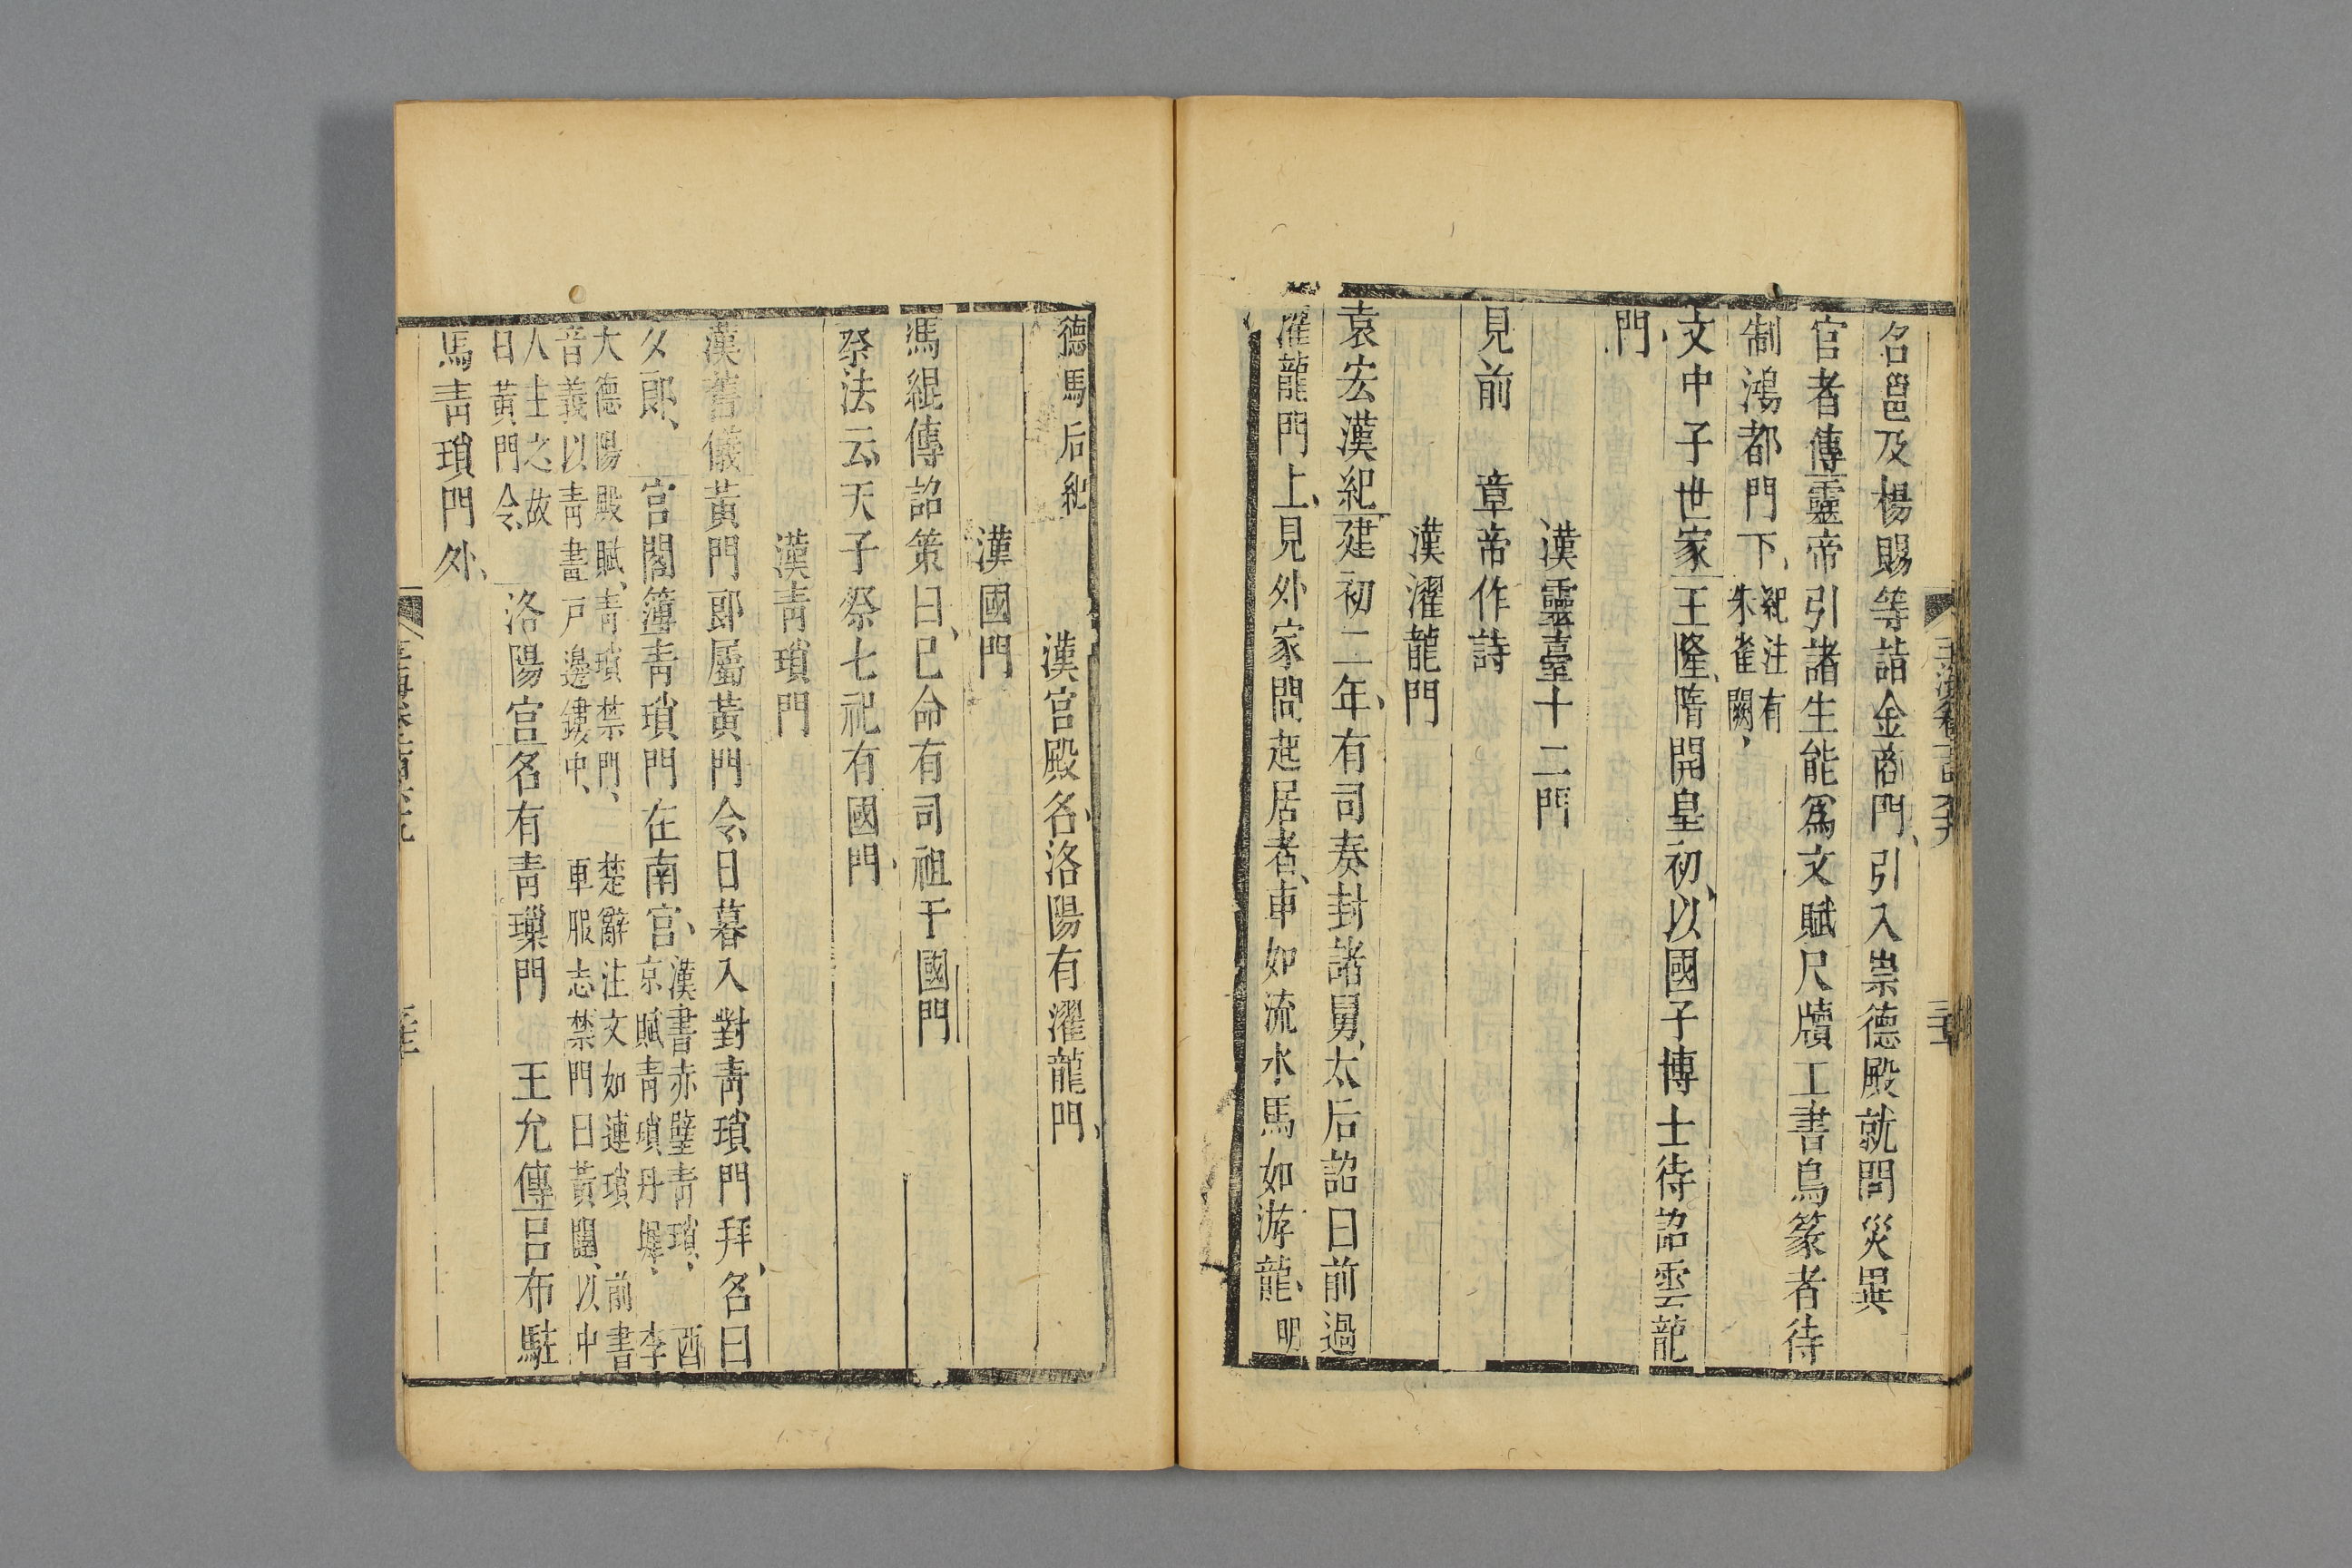 名邕及楊賜等詣金商門引入崇德殿就問災異
官者傳靈帝引諸生能爲文賦尺牘工書鳥篆者待
制鴻都門下紀注有朱雀闕
文中子世家王隆隋開皇初以國子博士待詔雲龍
門
漢靈臺十二門
見前 章帝作詩
漢濯龍門
袁宏漢紀建初二年有司奏封諸舅太后詔曰前過
濯龍門上見外家問起居者車如流水馬如游龍明
德馬后紀 漢宮殿名洛陽有濯龍門
漢國門
馮緄傳詔策曰已命有司祖于國門
祭法云天子祭七祀有國門
漢青瑣門
漢舊儀黃門郎屬黃門令日暮入對青瑣門拜名曰
夕郎 宮閣簿青瑣門在南宮漢書赤墀青瑣 西京賦青瑣丹墀 李
大德陽殿賦青瑣禁門 楚辭注文如連瑣 前書
音義以青畫戶邊鏤中 車服志禁門曰黃闥以中
人主之故
曰黃門令 洛陽宮名有青瑣門 王允傳呂布駐
馬青瑣門外